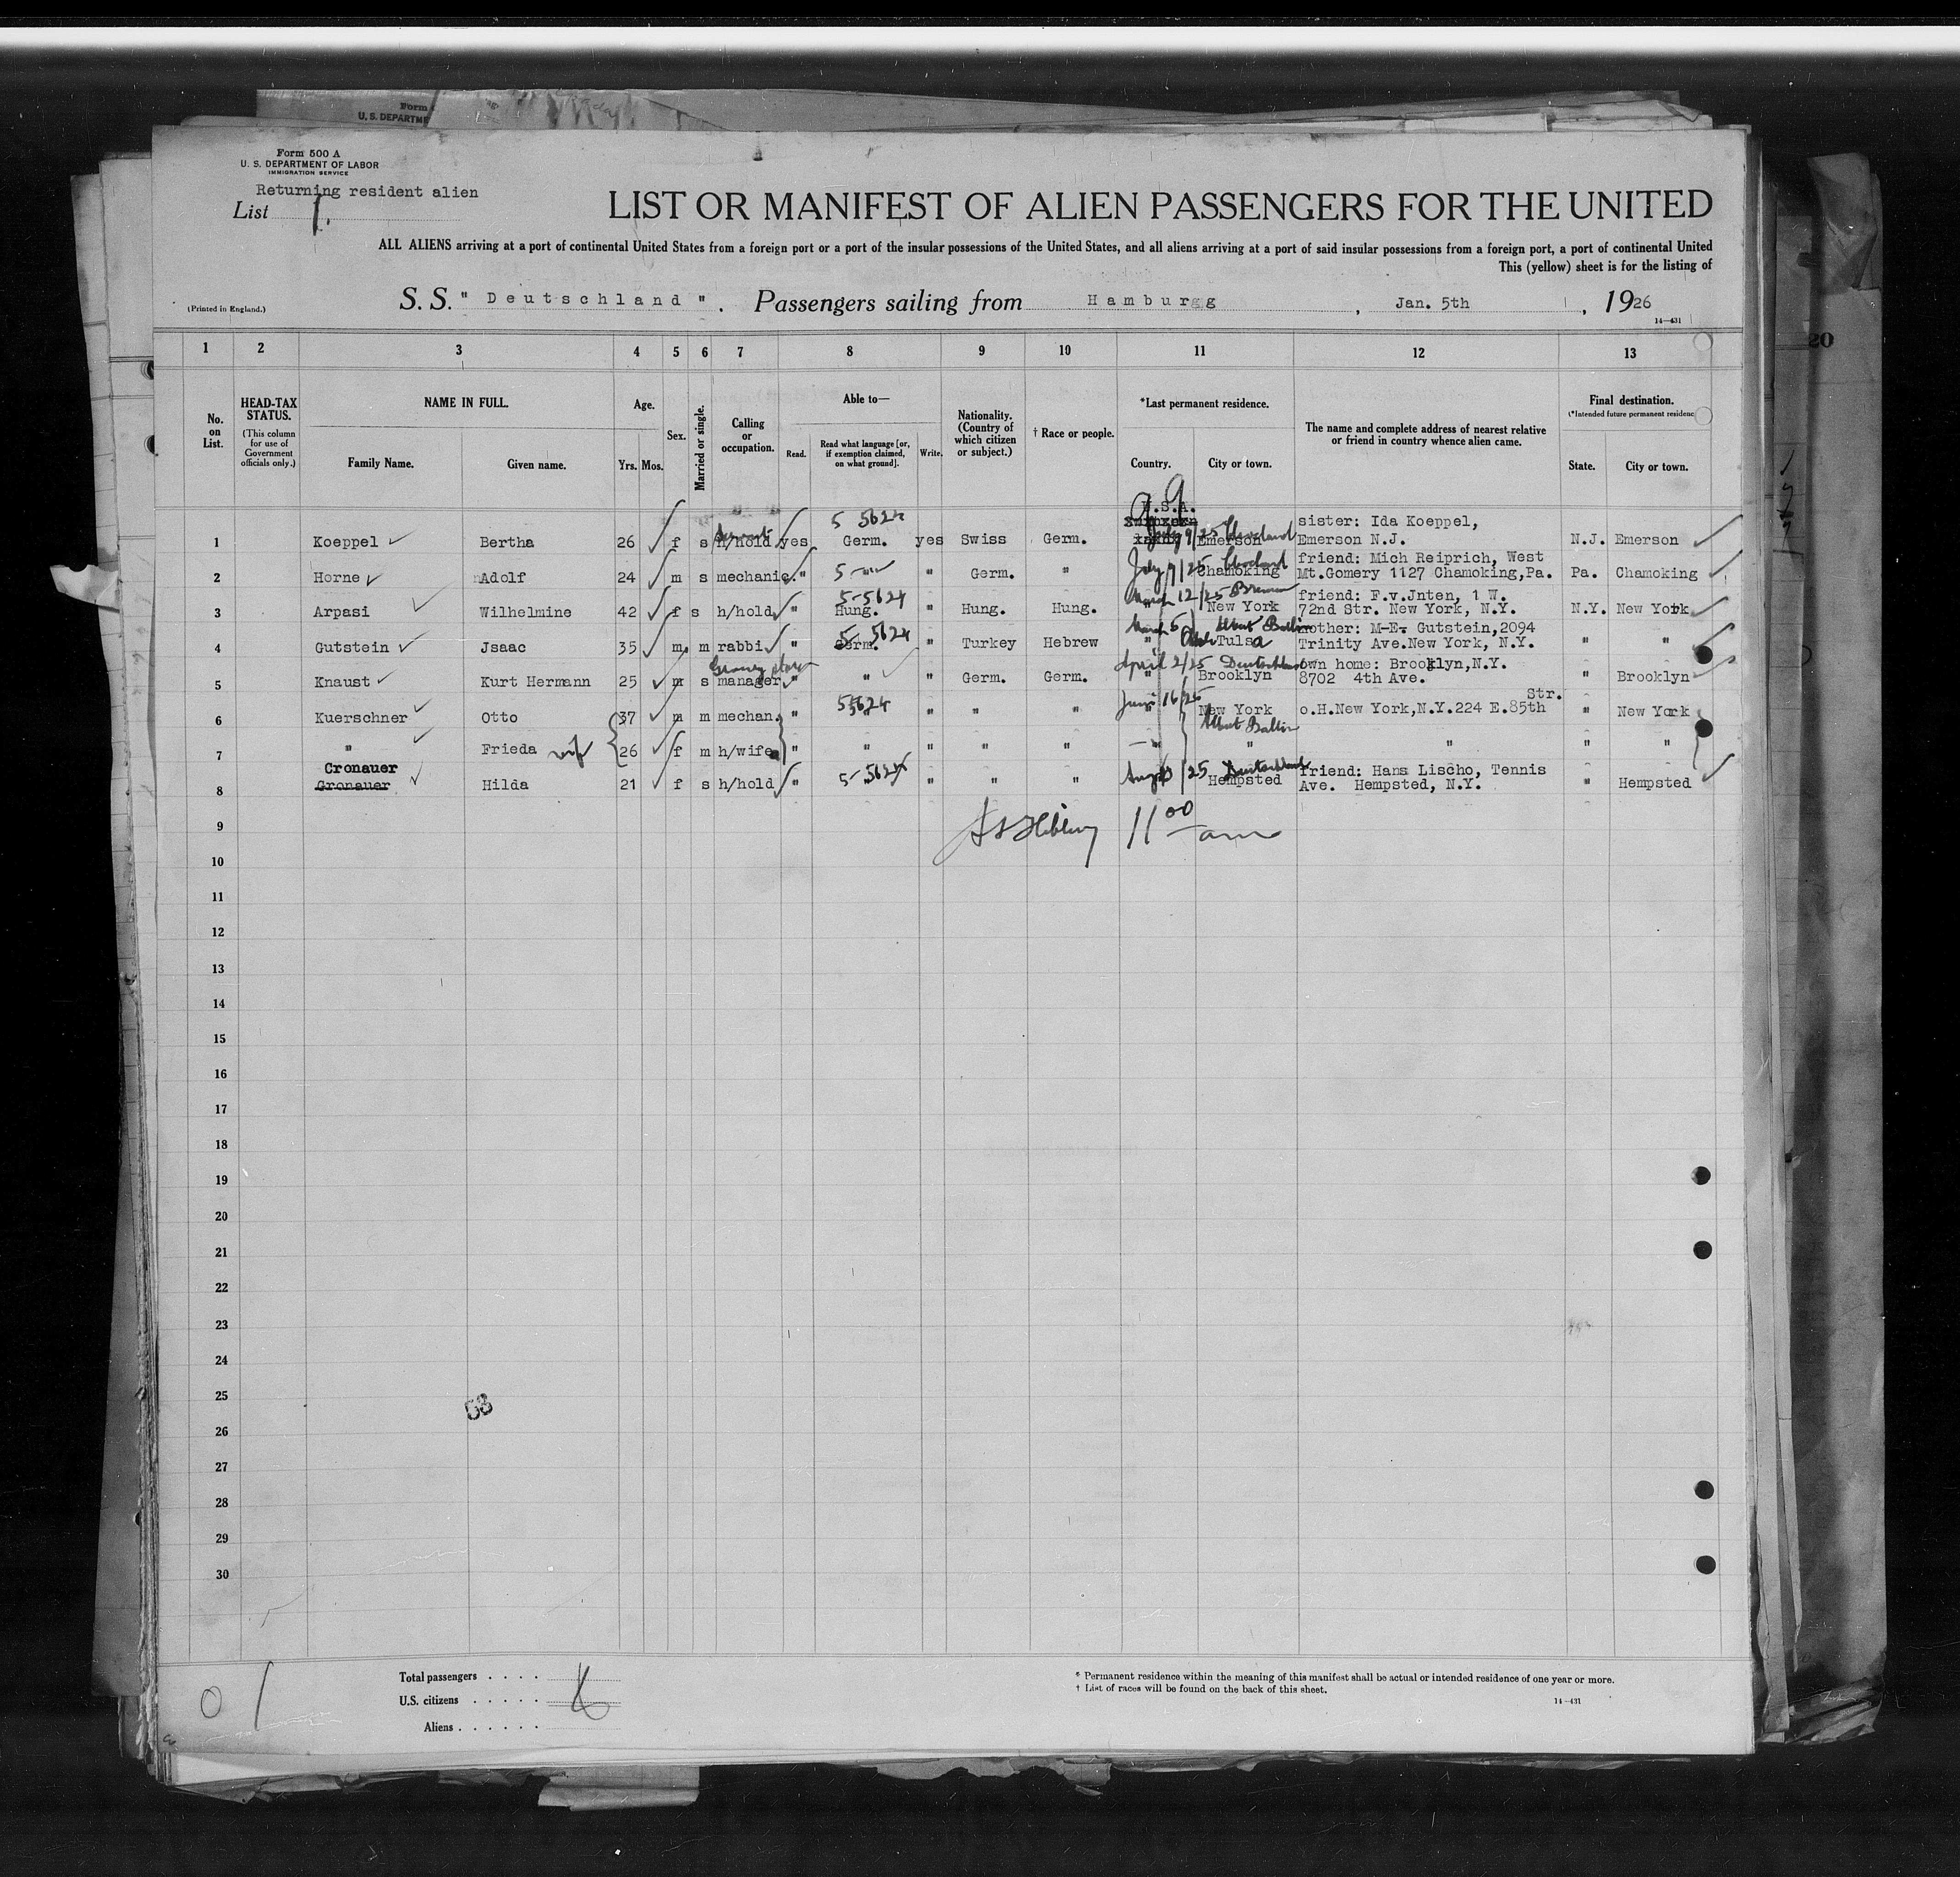 Form
U. S. DEPARTME
Form 500 A
U. S. DEPARTMENT OF LABOR
IMMIGRATION SERVICE
Returning resident alien
List 1.
LIST OR MANIFEST OF ALIEN PASSENGERS FOR THE UNITED
ALL ALIENS arriving at a port of continental United States from a foreign port or a port of the insular possessions of the United States, and all aliens arriving at a port of said insular possessions from a foreign port, a port of continental United
This (yellow) sheet is for the listing of
(Printed in England.)
S. S. " Deutschland ". Passengers sailing from Hamburgg, Jan. 5th, 1926
14—431
1 2 3 4 5 6 7 8 9 10 11 12 13
No. on List.
HEAD-TAX STATUS.
(This column for use of Government officials only.)
NAME IN FULL.
Family Name. Given name.
Age.
Yrs. Mos.
Sex.
Married or single.
Calling or occupation.
Able to—
Read. Read what language [or, if exemption claimed, on what ground]. Write.
Nationality. (Country of which citizen or subject.)
† Race or people.
*Last permanent residence.
Country. City or town.
The name and complete address of nearest relative or friend in country whence alien came.
Final destination.
(*Intended future permanent residence
State. City or town.
5 5624 U.S.A. sister: Ida Koeppel,
servant July 9/25 Cleveland
1 Koeppel Bertha 26 f s h/hold yes Germ. yes Swiss Germ. Emerson Emerson N.J. N.J. Emerson
July 9/25 Cleveland friend: Mich Reiprich, West
2 Horne Adolf 24 m s mechanic. " 5- " " Germ. " Chamoking Mt.Gomery 1127 Chamoking,Pa. Pa. Chamoking
5-5624 March 12/25 Bremen friend: F.v.Jnten, 1 W.
3 Arpasi Wilhelmine 42 f s h/hold " Hung. " Hung. Hung. " New York 72nd Str. New York, N.Y. N.Y. New York
5-5624 March 5 Albert Ballin mother: M-E. Gutstein,2094
4 Gutstein Jsaac 35 m. m rabbi " Germ. " Turkey Hebrew " Tulsa Trinity Ave.New York, N.Y. " "
April 2/25 Deutschland own home: Brooklyn,N.Y.
5 Knaust Kurt Hermann 25 m s manager " " " Germ. Germ. " Brooklyn 8702 4th Ave. " Brooklyn
5-5624 June 16/25 Str.
6 Kuerschner Otto 37 m m mechan. " " " " " " New York o.H.New York,N.Y.224 E.85th " New York
Albert Ballin
7 " Frieda wife 26 f m h/wife " " " " " " " " " "
Cronauer 5-5624 Aug /25 Deutschland friend: Hans Lischo, Tennis
8 Gronauer Hilda 21 f s h/hold " " " " " " Hempsted Ave. Hempsted, N.Y. " Hempsted
9 11 00 am
10
11
12
13
14
15
16
17
18
19
20
21
22
23
24
25
53
26
27
28
29
30
0 1
Total passengers . . . .
U.S. citizens . . . . .
Aliens . . . . . .
* Permanent residence within the meaning of this manifest shall be actual or intended residence of one year or more.
† List of races will be found on the back of this sheet.
14—431